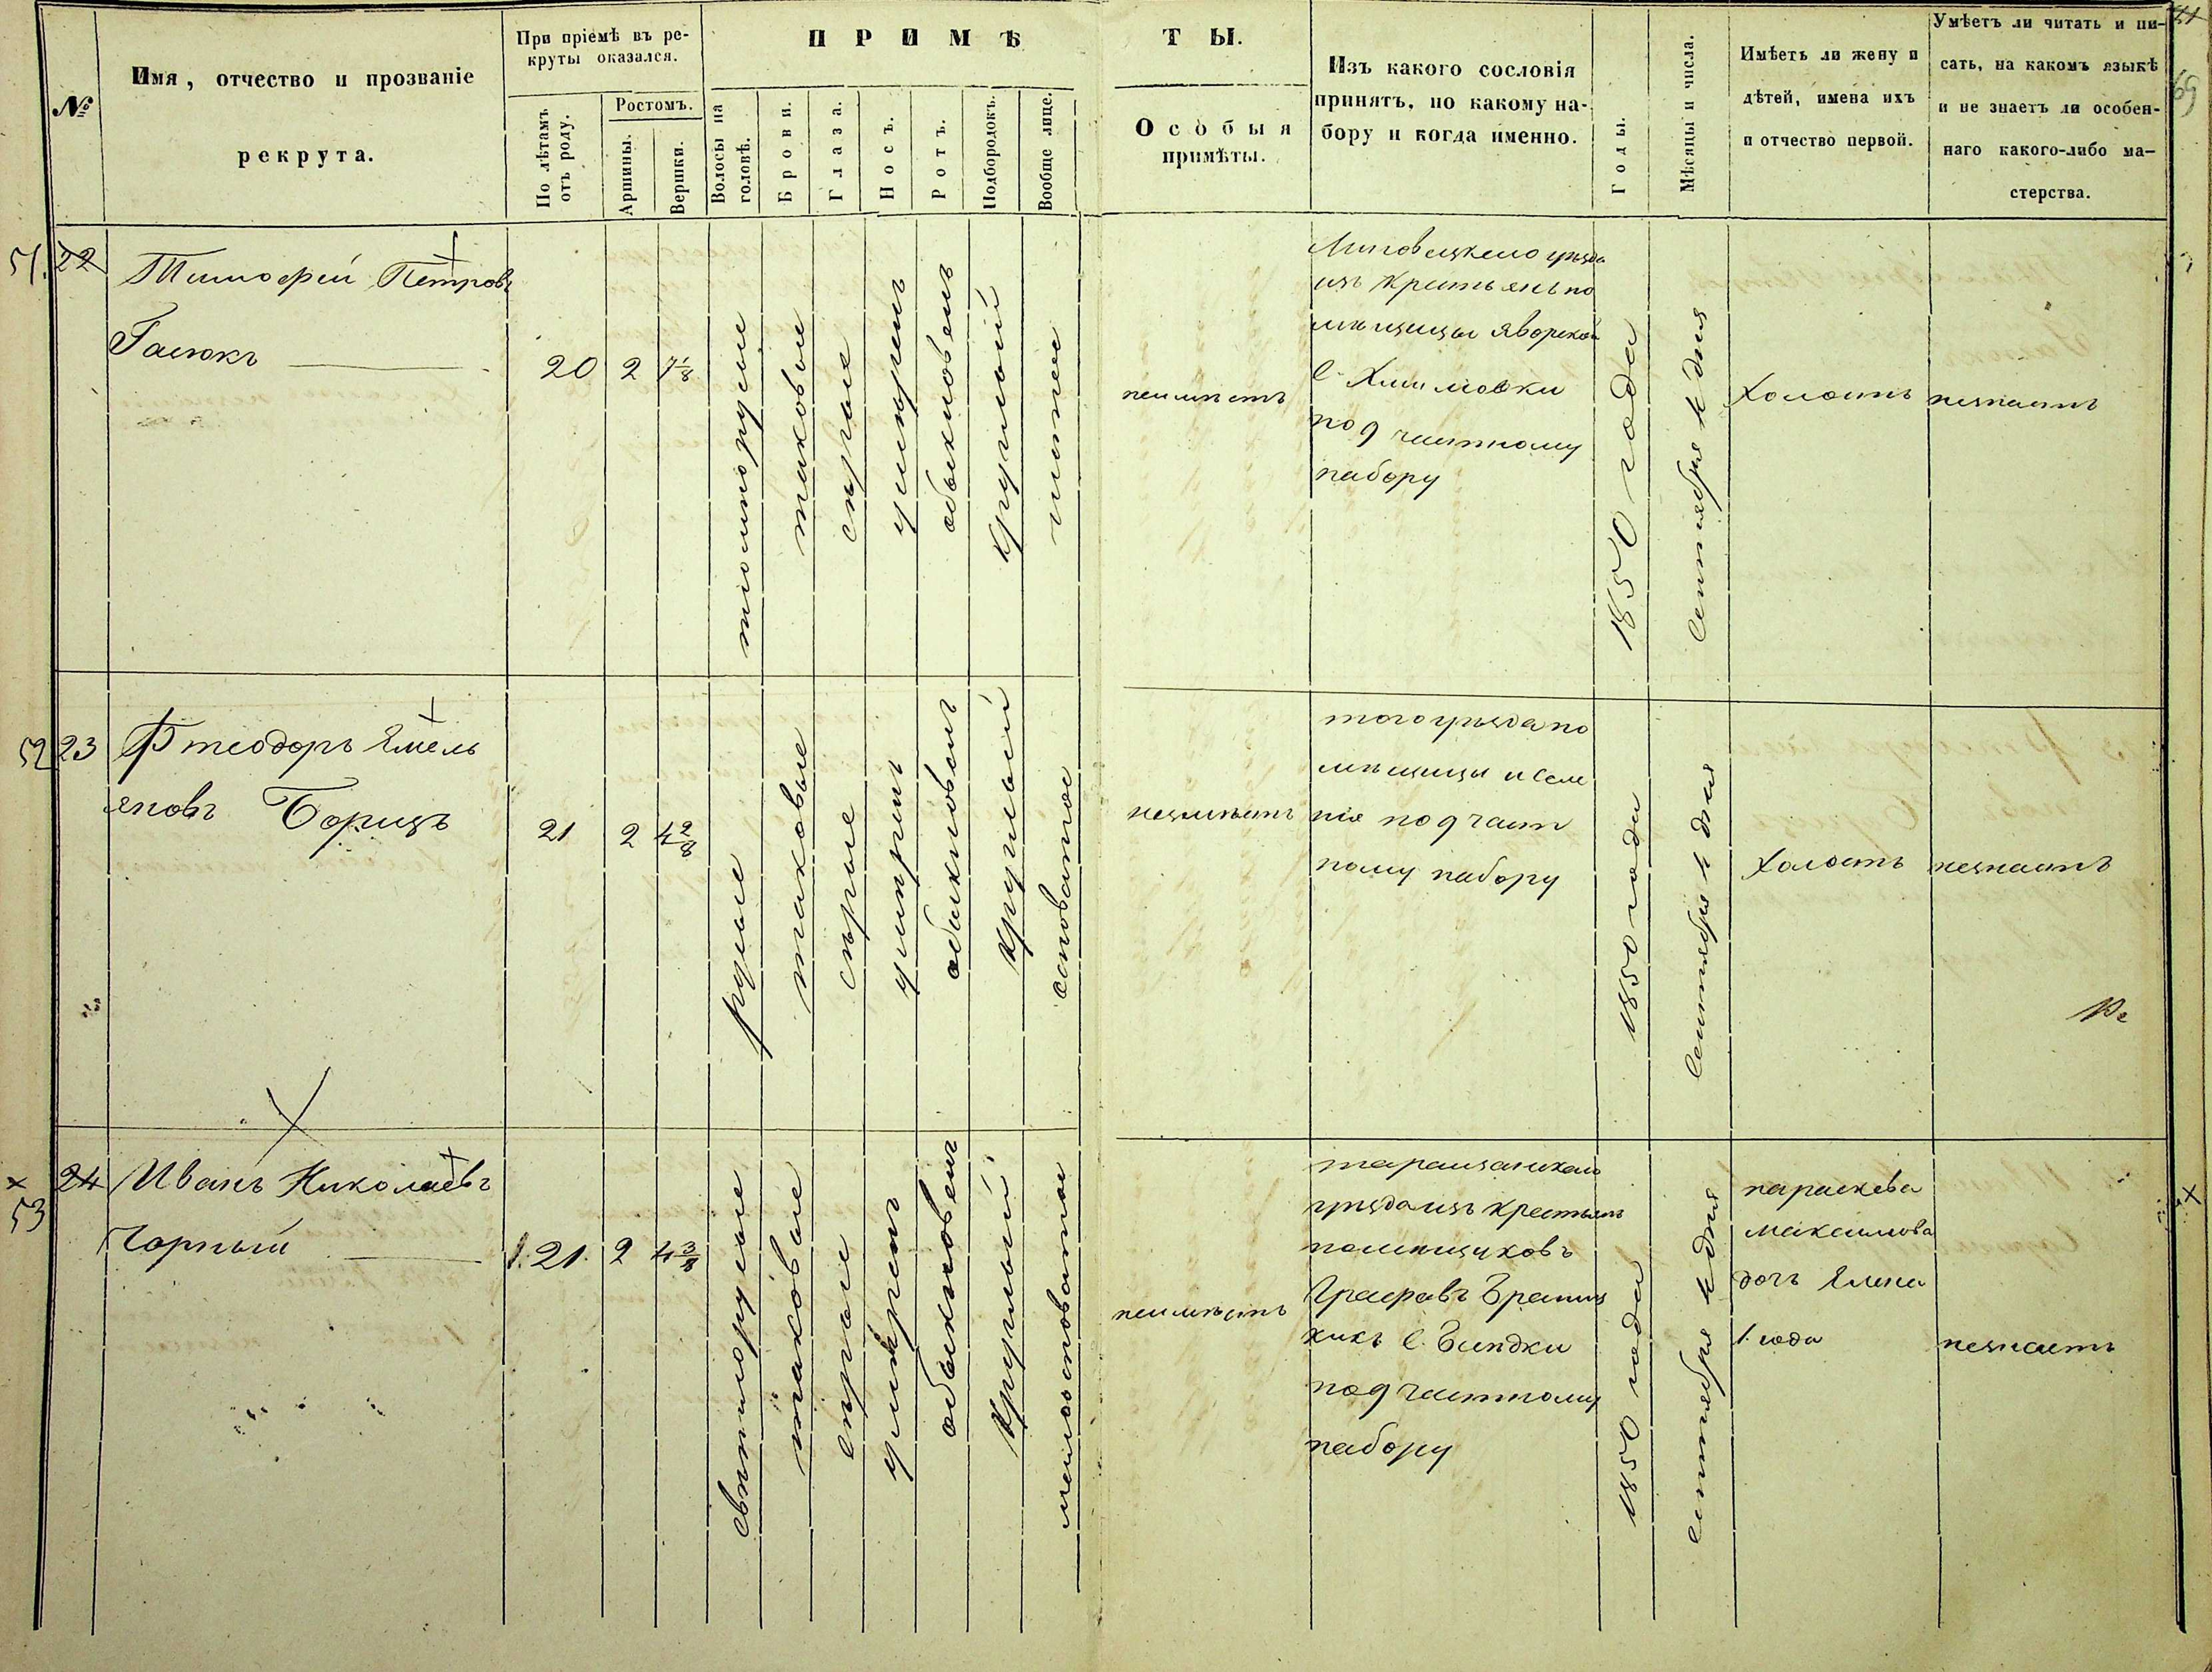 №
Имя, отчество и прозваніе
рекрута.
При пріемѣ въ ре-
круты оказался.
По лѣтамъ
отъ роду.
Ростомъ.
Аршины.
Вершки.
ПРИМѢ
Волосы на
головѣ.
Брови.
Глаза.
Носъ.
Ротъ.
Подбородокъ.
Вообще лице.
ТЫ.
Особыя
примѣты.
Изъ какого сословія
принятъ, по какому на-
бору и когда именно.
Годы.
Мѣсяцы и числа.
Имѣетъ ли жену и
дѣтей, имена ихъ
и отчество первой.
Умѣетъ ли читать и пи-
сать, на какомъ языкѣ
и не знаетъ ли особен-
наго какого-либо ма-
стерства.
69
51.
22
Тимофей Петровъ
Гасюкъ
20
2
7 1/8
темнорусые
таковые
сѣрые
умѣрен
обыкновенъ
круглый
чистое
неимѣетъ
Липовецкаго уѣзда
изъ крестьянъ по
мѣщицы Яворской
с.
под частному
набору
1850 года
Сентября 1 дня
холостъ
незнаетъ
52
23
Фтеодоръ Емель
яновъ Борицъ
21
2
4 2/8
русые
таковые
сѣрые
умѣрен
обыкновен
круглый
осповатое
неимѣетъ
того уѣзда по
мѣщицы и селе
нія под част
ному набору
1850 года
Сентября 1 дня
холостъ
незнаетъ
53
24
Иванъ Николаевъ
Чорный
21.
2
4 3/8
свѣтлорусые
таковые
сѣрые
умѣрен
обыкновен
круглый
мелкосповатое
неимѣетъ
таращанскаго
уѣзда изъ крестьянъ
помѣщиковъ
Графовъ Браниц
кихъ с.
под частному
набору
1850 года
Сентября 1 дня
параскева
максимова
дочъ Елена
1. года
незнаетъ